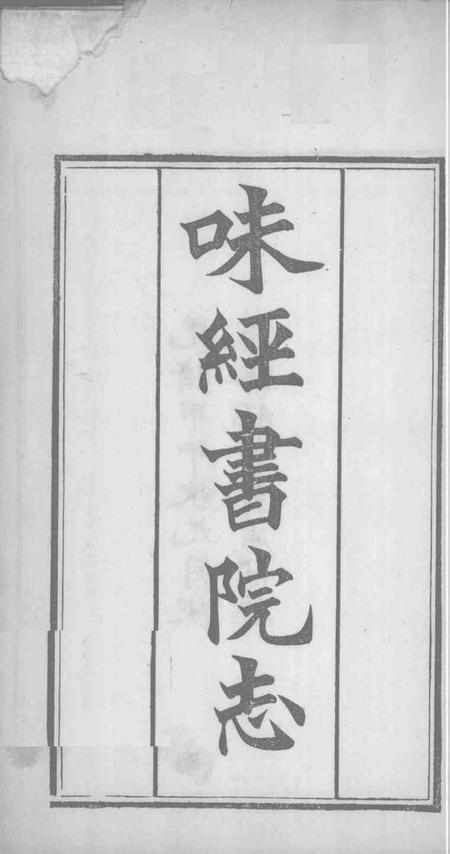 味經書院志